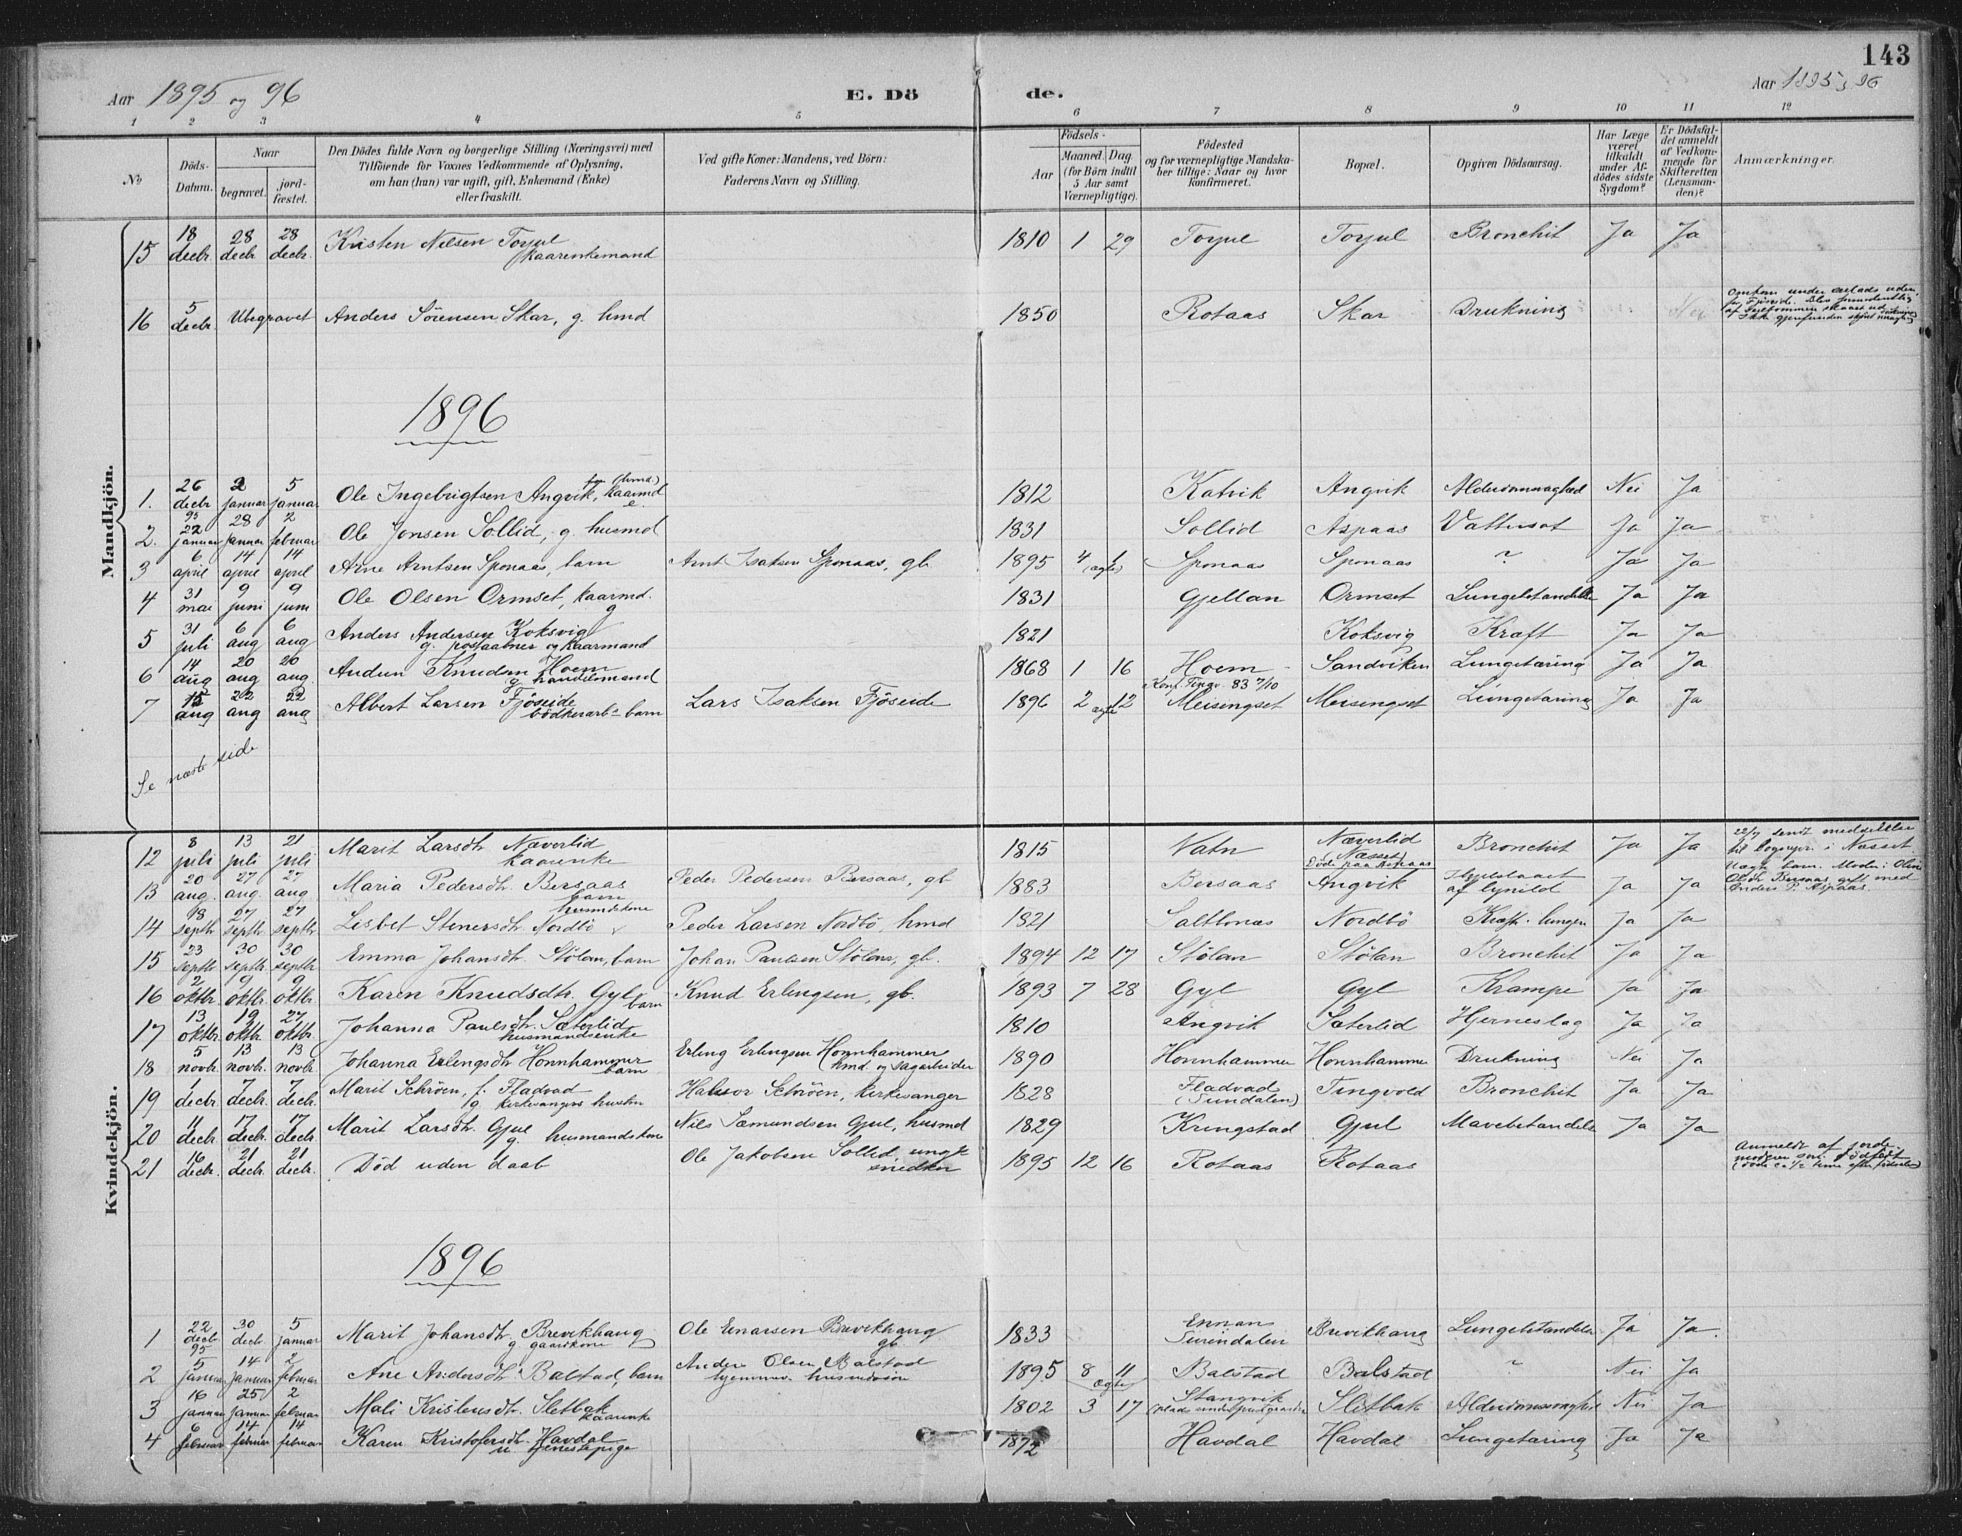 143
Aar 1895 og 96 E. Dö de. Aar 1895 og 96
1 2 3 4 5 6 7 8 9 10 11 12
No
Döds-Datum.
Naar
begravet.
jordfæstet.
Den Dödes fulde Navn og borgerlige Stilling (Næringsvei) med
Tilföiende for Voxnes Vedkommende af Oplysning,
om han (hun) var ugift, gift, Enkemand (Enke)
eller fraskilt.
Ved gifte Koner: Mandens, ved Börn:
Faderens Navn og Stilling.
Födsels-
Aar
Maaned. Dag
(for Börn indtil
5 Aar samt
Værnepligtige).
Födested
og for værnepligtige Mandskaber tillige: Naar og hvor
konfirmeret.
Bopæl.
Opgiven Dödsaarsag.
Har Læge været tilkaldt under Afdödes sidste Sygdom?
Er Dödsfaldet anmeldt af Vedkommende for Skifteretten (Lensmanden)?
Anmærkninger.
Mandkjön.
15 18 decbr. 28 decbr. 28 decbr. Kristen Nilsen Torjul kaarenkemand 1810 1 29 Torjul Torjul Bronchit Ja Ja
16 5 decbr. Ubegravet Anders Sörensen Skar, g. hmd 1850 Rotaas Skar Drukning Nei
1896
1. 26 decbr 95 2 januar 5 januar Ole Ingebrigtsen Angvik, kaarmd 1812 Katvik Angvik Alderdomssvaghed Nei Ja
2. 22 januar 28 januar 2 februar Ole Jonsen Sollid, g. husmd 1831 Sollid Aspaas Vattersot Ja Ja
3 6 april 14 april 14 april Arne Arntsen Sponaas, barn Arnt Isaksen Sponaas, gb. 1895 4 1 (ægte) Sponaas Sponaas ? Ja Ja
4 31 mai 9 juni 9 juni Ole Olsen Ormset, kaarmd. g 1831 Gjellan Ormset Lungebetændelse Ja Ja
5 31 juli 6 aug 6 aug Anders Andersen Koksvig g. postaabner og kaarmand 1821 Koksvig Kræft Ja Ja
6 14 aug 20 aug 20 aug. Audun Knudsen Hoem g handelsmand 1868 1 16 Hoem Konf. Tingv. 83 7/10 Sandviken Lungetæring Ja Ja
7 15 aug 22 aug 22 aug Albert Larsen Fjöseide bödkerarb- barn Lars Isaksen Fjöseide 1896 2 12 ægte Meisingset Meisingset Lungetæring Ja Ja
Se næste side
Kvindekjön.
12 8 juli 13 juli 21 juli Marit Larsdtr. Næverlid kaarenke 1815 Vatn Næverlid Næsset Döde paa Aspaas Bronchit Ja Ja
13 20 aug. 27 aug. 27 aug Maria Pedersdtr. Bersaas barn Peder Pedersen Bersaas, gb 1883 Bersaas Angvik af lynild Ja Ja
14 18 septbr 27 septbr 27 septbr Lisbet Stenersdtr. Nordbö husmdskone Peder Larsen Nordbö, hmd 1821 Saltbones Nordbö Kræft i lungen Ja Ja
15 23 septbr 30 septbr. 30 septbr Emma Johansdtr. Stölan, barn Johan Paulsen Stölan, gb. 1894 12 17 Stölan Stölan Bronchit Ja Ja
16 2 oktbr. 9 oktbr. 9 oktbr. Karen Knudsdtr. Gyl barn Knud Erlingsen, gb. 1893 7 28 Gyl Gyl Krampe Ja Ja
17 13 oktbr. 19 oktbr. 27 oktbr. Johanna Paulsdtr. Sæterlid husmandsenke 1810 Angvik Sæterlid Hjerneslag Ja Ja
18 5 novbr. 13 novbr. 13 novbr Johanna Erlingsdtr. Honnhammer barn Erling Erlingsen Honnhammer hmd. og sagarbeider 1890 Honnhammer Honnhammer Drukning Nei Ja
19 1 decbr. 7 decbr. 7 decbr. Marit Schröen, f. Fladvad g kirkesangers hustru Halvor Schröen, kirkesanger 1828 Fladvad (Sundalen) Tingvold Bronchit Ja Ja
20 11 decbr 17 decbr. 17 decbr. Marit Larsdtr. Gjul g. husmandskone Nils Sæmundsen Gjul, husmd 1829 Kringstad Gjul Mavebetændelse Ja Ja
21 16 decbr. 21 decbr. 21 decbr. Död uden daab Ole Jakobsen Sollid, ungk snedker 1895 12 16 Rotaas Rotaas Anmeldt af jordmoderen som dödfödt
1896
1 22 decbr 95 30 decbr 5 januar Marit Johansdtr. Brevikhaug g gaardkone Ole Einarsen Brevikhaug gb 1833 Ennan Surendalen Brevikhaug Lungebetændelse Ja Ja
2 5 januar 14 januar 2 februar Ane Andersdtr. Balstad, barn Anders Olsen Balstad hjemmev. husmdssön 1895 8 11 ægte Balstad Balstad ? Nei Ja
3 16 januar 25 januar 2 februar Mali Kristensdtr. Sletbak kaarenke 1802 3 17 Stangvik Sletbak Alderdomssvaghed Nei Ja
4 6 februar 14 februar 14 februar Karen Kristofersdtr. Havdal u tjenestepige 1872 Havdal Havdal Lungetæring Ja Ja